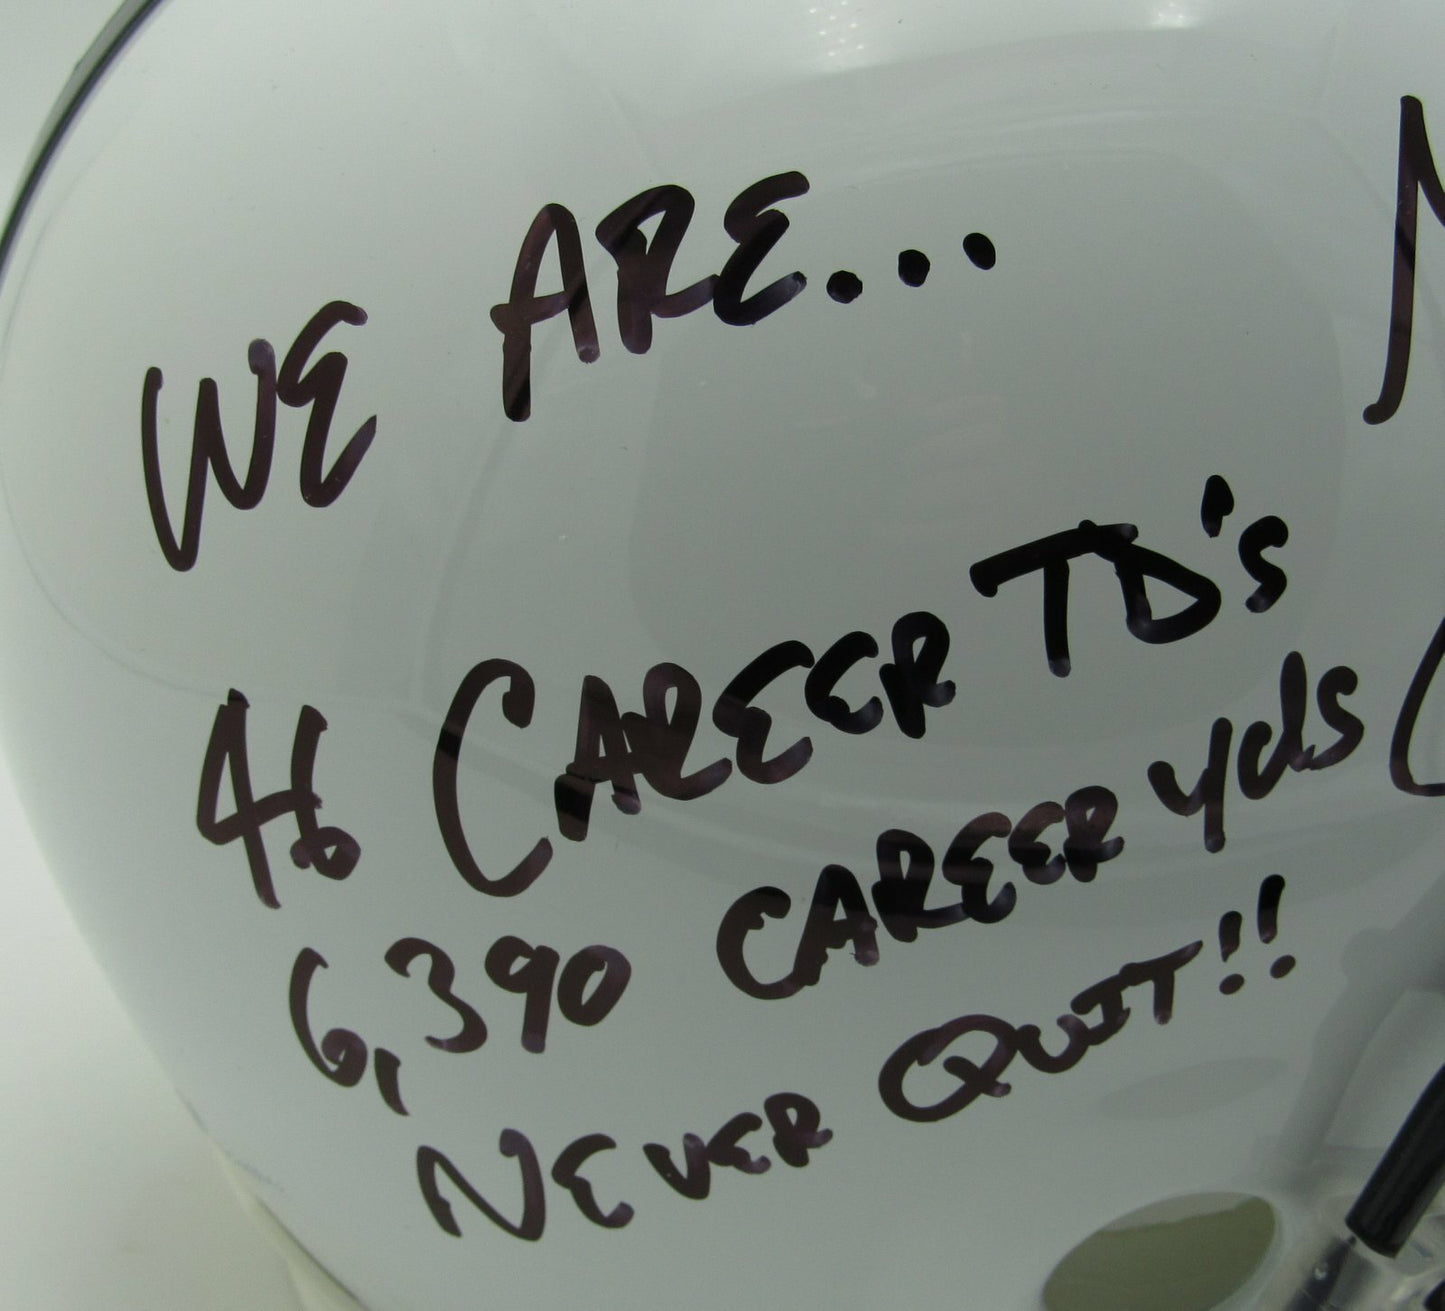 WE ARE...
46 CAREER TD's
6,390 CAREER yds
NEVER QUIT!!